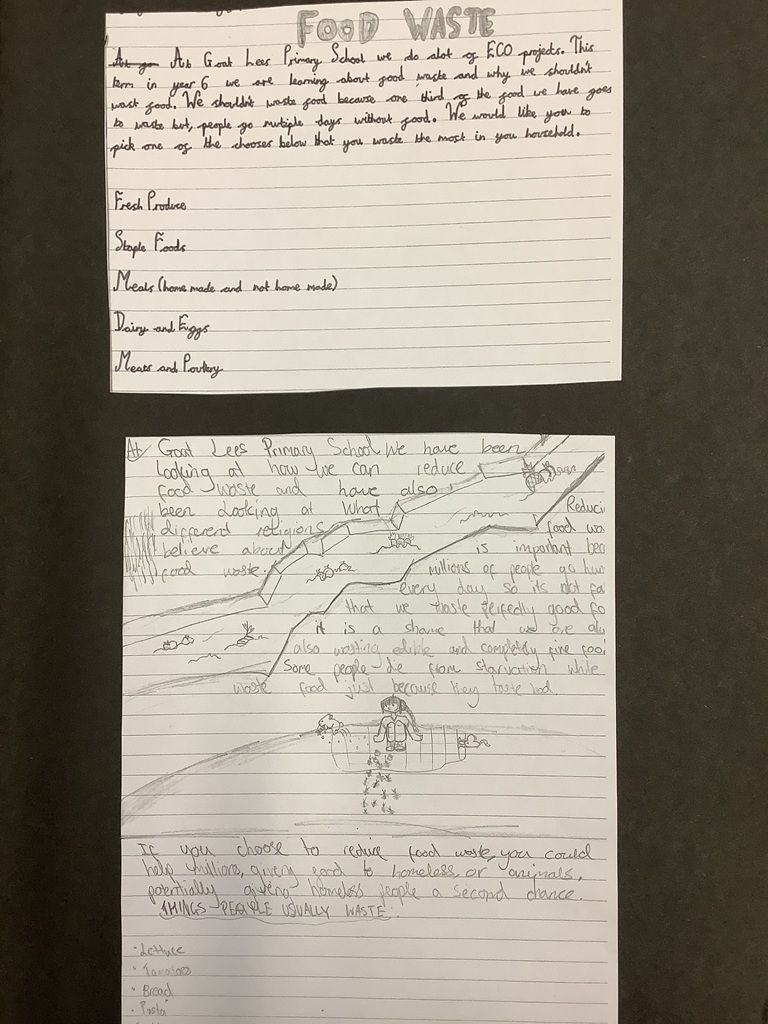 FOOD WASTE
At Goat Lees Primary School we do alot of ECO projects. This
term in year 6 we are learning about food waste and why we shouldn't
wast food. We shouldn't waste food because one third of the food we have goes
to waste but, people go multiple days without food. We would like you to
pick one of the chooses below that you waste the most in you household.
Fresh Produce
Staple Foods
Meals (home made and not home made)
Dairy and Eggs
Meats and Poultry
At Goat Lees Primary School we have been
looking at how we can reduce
food waste and have also
been looking at what
different religions
believe about
food waste.
Reduci
food wa
is important bec
millions of people go hun
every day so its not fa
that we waste perfectly good fo
it is a shame that we are
also wasting edible and completly fine foo
Some people die from starvation while
waste food just because they taste bad.
If you choose to reduce food waste, you could
help millions, giving food to homeless, or animals,
potentially giving homeless people a second chance.
THINGS PEOPLE USUALLY WASTE:
· Lettuce
· Tomatoes
· Bread
· Pasta